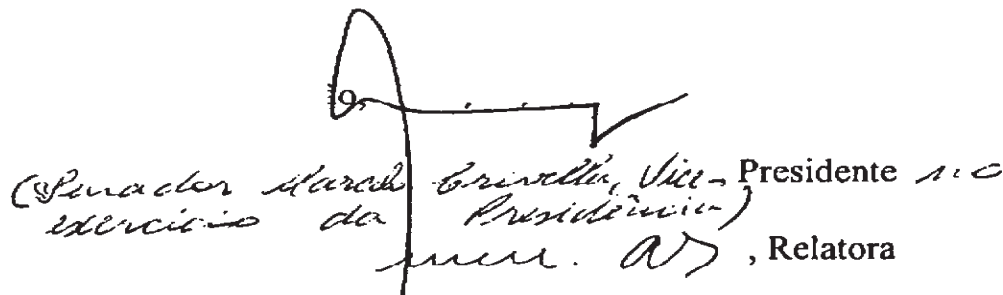 (Senador Marcelo Crivella, Vice-Presidente no
exercício da Presidência)
, Relatora